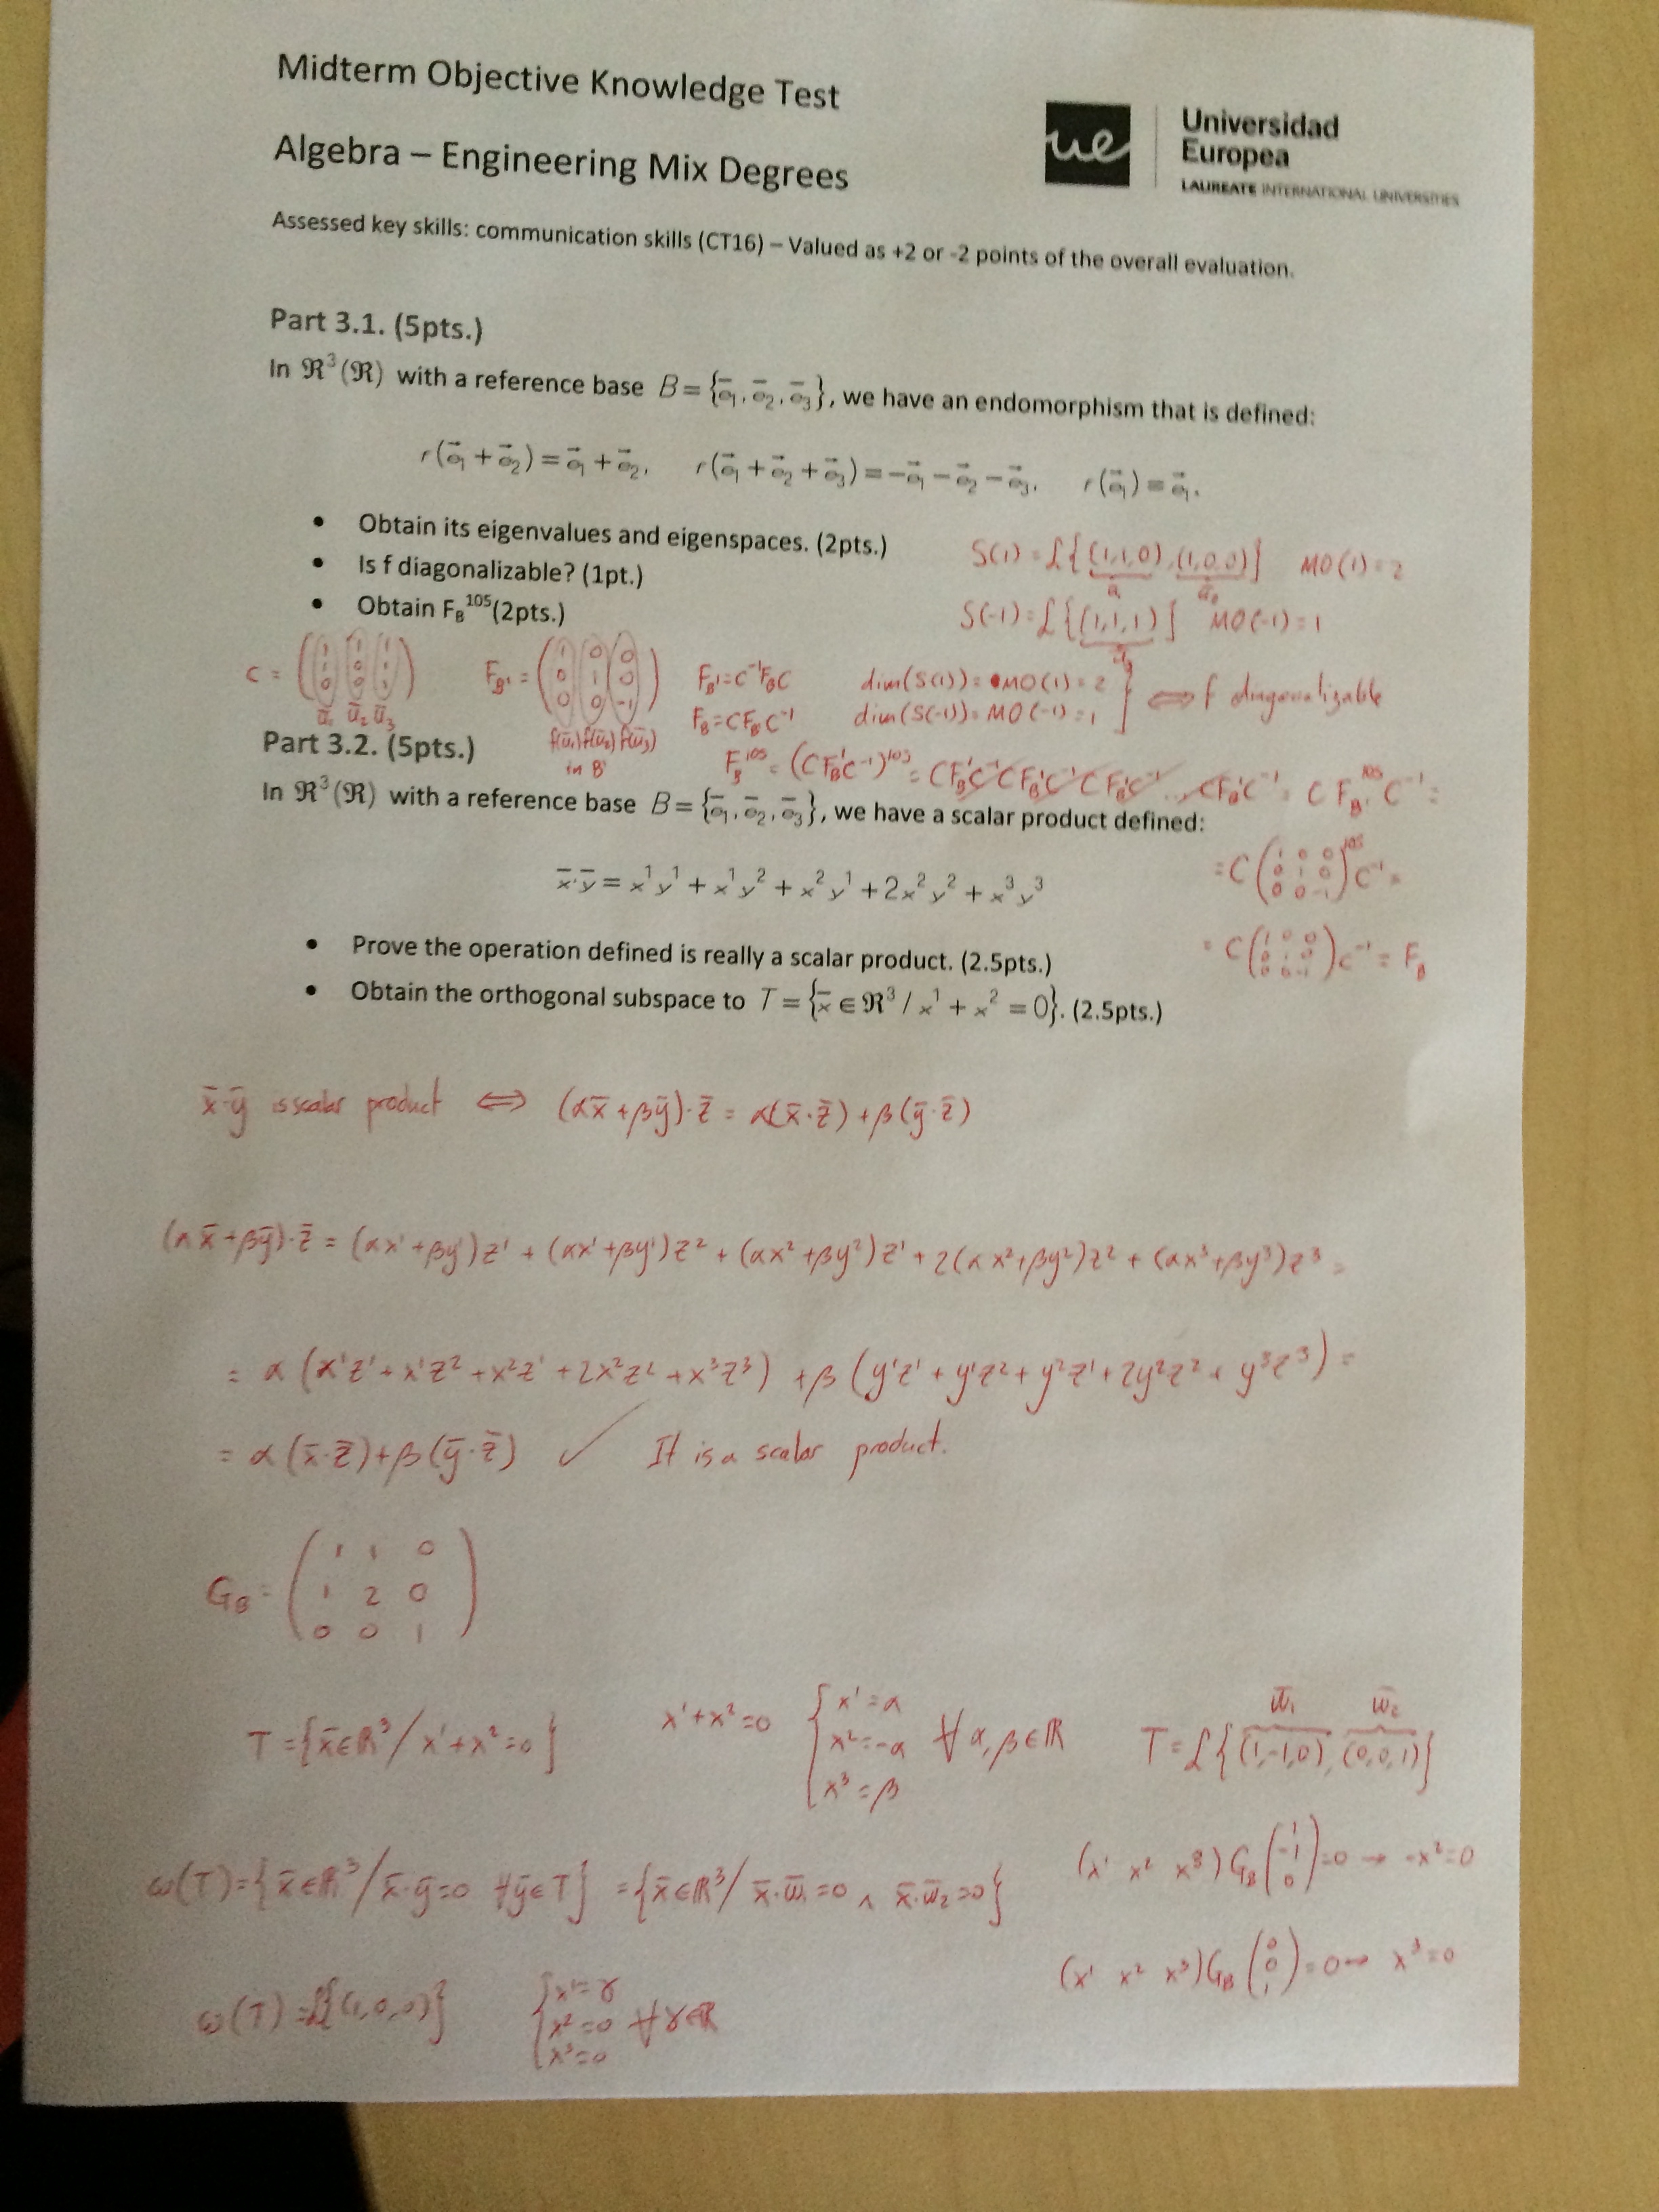 Midterm Objective Knowledge Test
Algebra – Engineering Mix Degrees
ue
Universidad
Europea
LAUREATE INTERNATIONAL UNIVERSITIES
Assessed key skills: communication skills (CT16) – Valued as +2 or -2 points of the overall evaluation.
Part 3.1. (5pts.)
In ℜ³(ℜ) with a reference base B = {e̅₁, e̅₂, e̅₃}, we have an endomorphism that is defined:
f(e⃗₁ + e⃗₂) = e⃗₁ + e⃗₂, f(e⃗₁ + e⃗₂ + e⃗₃) = −e⃗₁ − e⃗₂ − e⃗₃, f(e⃗₁) = e⃗₁.
• Obtain its eigenvalues and eigenspaces. (2pts.)
• Is f diagonalizable? (1pt.)
• Obtain F_B¹⁰⁵(2pts.)
S(1) = ℒ{(1,1,0), (1,0,0)} MO(1) = 2
u̅₁ u̅₂
S(-1) = ℒ{(1,1,1)} MO(-1) = 1
u̅₃
C = (1 1 1
1 0 1
0 0 1)
u̅₁ u̅₂ u̅₃
F_B' = (1 0 0
0 1 0
0 0 -1)
f(u̅₁) f(u̅₂) f(u̅₃)
in B'
F_B' = C⁻¹F_BC
F_B = CF_B'C⁻¹
dim(S(1)) = MO(1) = 2
dim(S(-1)) = MO(-1) = 1
⟺ f diagonalizable
F_B¹⁰⁵ = (CF_B'C⁻¹)¹⁰⁵ = CF_B'C⁻¹CF_B'C⁻¹CF_B'C⁻¹...CF_B'C⁻¹ = CF_B'¹⁰⁵C⁻¹ =
= C(1 0 0
0 1 0
0 0 -1)¹⁰⁵C⁻¹ =
= C(1 0 0
0 1 0
0 0 -1)C⁻¹ = F_B
Part 3.2. (5pts.)
In ℜ³(ℜ) with a reference base B = {e̅₁, e̅₂, e̅₃}, we have a scalar product defined:
x̅·y̅ = x¹y¹ + x¹y² + x²y¹ + 2x²y² + x³y³
• Prove the operation defined is really a scalar product. (2.5pts.)
• Obtain the orthogonal subspace to T = {x̅ ∈ ℜ³ / x¹ + x² = 0}. (2.5pts.)
x̅·y̅ is scalar product ⟺ (αx̅ + βy̅)·z̅ = α(x̅·z̅) + β(y̅·z̅)
(αx̅ + βy̅)·z̅ = (αx¹ + βy¹)z¹ + (αx¹ + βy¹)z² + (αx² + βy²)z¹ + 2(αx² + βy²)z² + (αx³ + βy³)z³ =
= α(x¹z¹ + x¹z² + x²z¹ + 2x²z² + x³z³) + β(y¹z¹ + y¹z² + y²z¹ + 2y²z² + y³z³) =
= α(x̅·z̅) + β(y̅·z̅) ✓ It is a scalar product.
G_B = (1 1 0
1 2 0
0 0 1)
T = {x̅∈ℝ³/x¹+x²=0} x¹+x²=0 {x¹=α
x²=-α ∀α,β∈ℝ
x³=β
w̅₁ w̅₂
T = ℒ{(1,-1,0), (0,0,1)}
ω(T) = {x̅∈ℝ³/x̅·y̅=0 ∀y̅∈T} = {x̅∈ℝ³/x̅·w̅₁=0 ∧ x̅·w̅₂=0}
(x¹ x² x³)G_B(1
-1
0) = 0 → -x²=0
(x¹ x² x³)G_B(0
0
1) = 0 → x³=0
ω(T) = ℒ{(1,0,0)} {x¹=γ
x²=0 ∀γ∈ℝ
x³=0